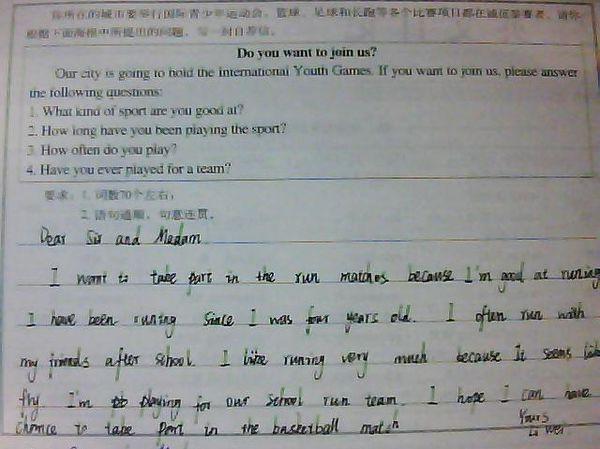 你所在的城市要举行国际青少年运动会，篮球、足球和长跑等多个比赛项目都在诚征参赛者。请你
根据下面海报中所提出的问题，写一封自荐信。
Do you want to join us?
Our city is going to hold the international Youth Games. If you want to join us, please answer
the following questions:
1. What kind of sport are you good at?
2. How long have you been playing the sport?
3. How often do you play?
4. Have you ever played for a team?
要求：1. 词数70个左右；
2. 语句通顺，句意连贯。
Dear Sir and Madam
I want to take part in the run matches because I'm good at runing
I have been runing since I was four years old. I often run with
my friends after school. I like runing very much because It seems like
fly I'm playing for our school run team I hope I can have
chance to take part in the basketball match
Yours
Li Wei